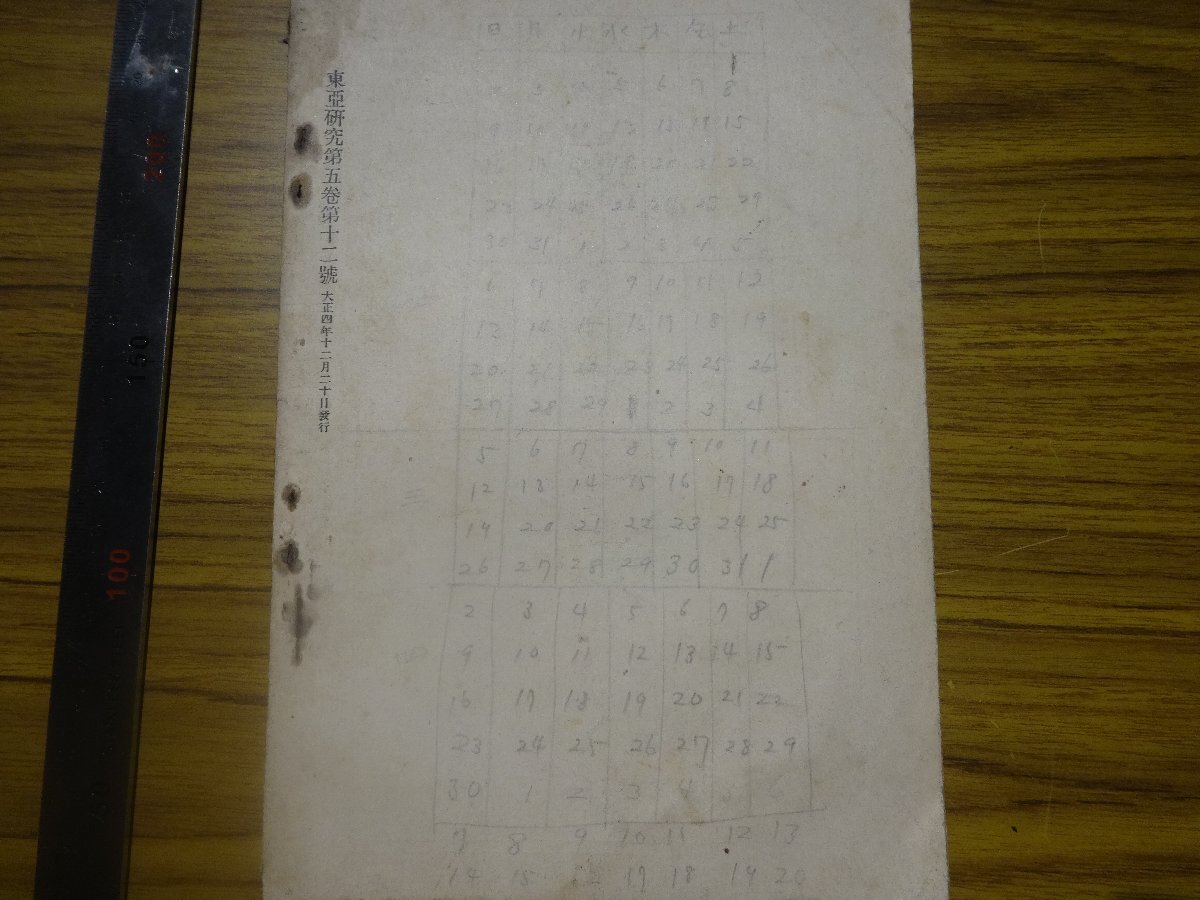 東亞研究第五卷第十二號 大正四年十二月二十日發行
200
150
100
日 月 火 水 木 金 土
1
3 6 7 8
15
22
24 29
30 31 1 2 3 4 5
6 7 8 9 10 11 12
18 19
20 21 22 23 24 25 26
27 28 29 1 2 3 4
5 6 7 8 9 10 11
三
12 13 14 15 16 17 18
19 20 21 22 23 24 25
26 27 28 29 30 31 1
2 3 4 5 6 7 8
9 10 11 12 13 14 15
16 17 18 19 20 21 22
23 24 25 26 27 28 29
30 1 2 3 4 5 6
7 8 9 10 11 12 13
14 15 17 18 19 20